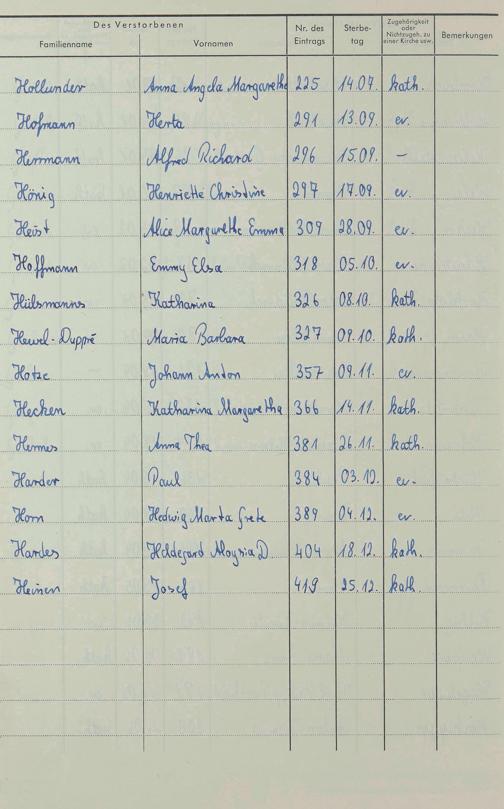 Des Verstorbenen
Familienname Vornamen Nr. des Eintrags Sterbetag Zugehörigkeit oder Nichtzugeh. zu einer Kirche usw. Bemerkungen
Hollunder Anna Angela Margarethe 225 14.07. kath.
Hofmann Herta 291 13.09. ev.
Herrmann Alfred Richard 296 15.09. –
Hönig Henriette Christine 297 17.09. ev.
Heist Alice Margarethe Emma 309 28.09. ev.
Hoffmann Emmy Elsa 318 05.10. ev.
Hülsmanns Katharina 326 08.10. kath.
Hewel-Duppré Maria Barbara 327 09.10. kath.
Hotze Johann Anton 357 09.11. ev.
Hecken Katharina Margaretha 366 14.11. kath.
Hermes Anna Thea 381 26.11. kath.
Harder Paul 384 03.12. ev.
Horn Hedwig Marta Grete 389 04.12. ev.
Hardes Hildegard Aloysia D. 404 18.12. kath.
Heinen Josef 419 25.12. kath.